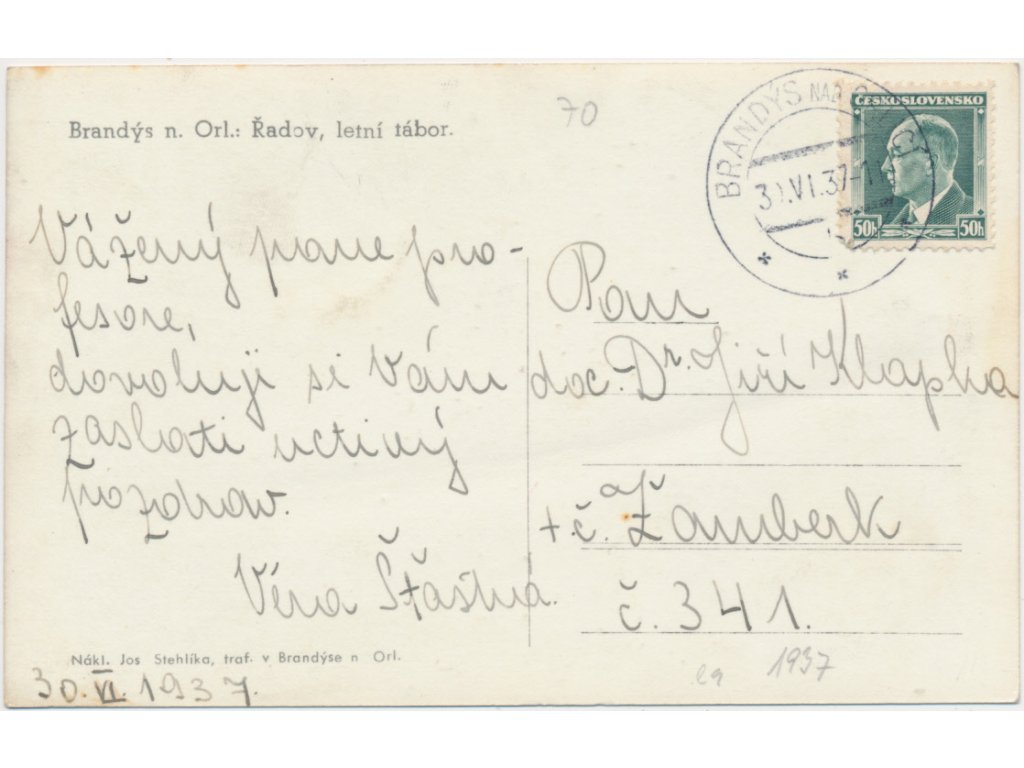 Brandýs n. Orl.: Řadov, letní tábor.
70
BRANDÝS NAD
30.VI.37-1
ČESKOSLOVENSKO
50h 50h
Vážený pane pro-
fesore,
dovoluji si Vám
zaslati uctivý
pozdrav.
Věra Šťastná.
Pan
doc. Dr. Jiří Klapka
t.č. Žamberk
č. 341.
Nákl. Jos Stehlíka, traf. v Brandýse n Orl.
30.VI.1937.
1937